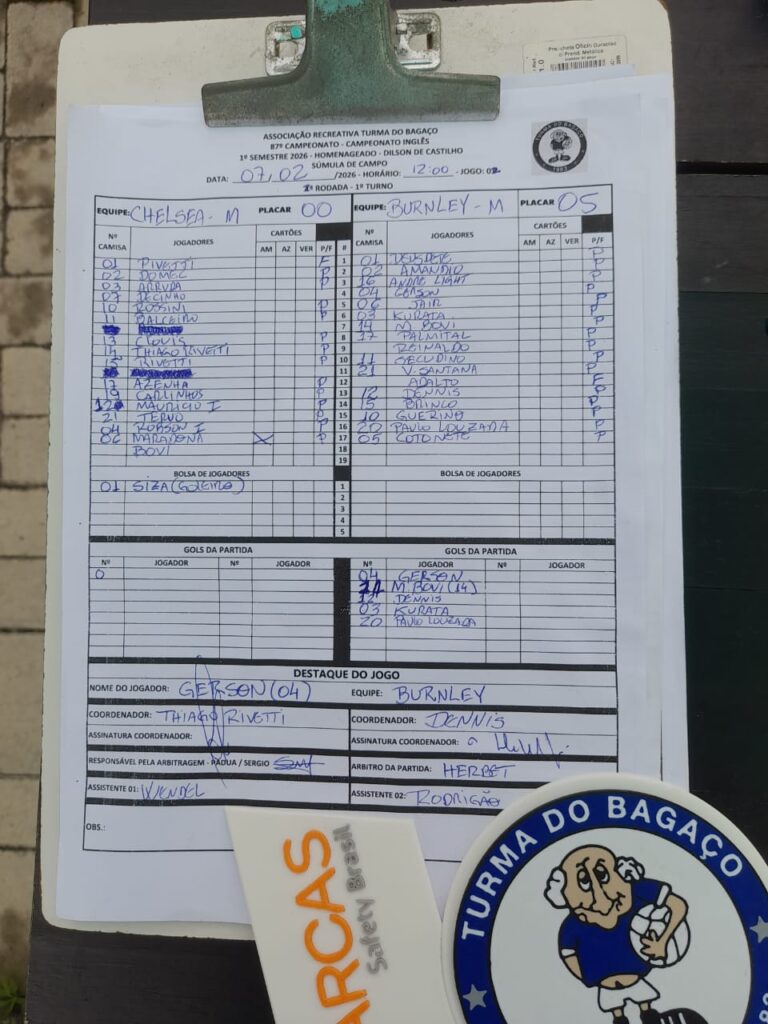 ASSOCIAÇÃO RECREATIVA TURMA DO BAGAÇO
87º CAMPEONATO - CAMPEONATO INGLÊS
1º SEMESTRE 2026 - HOMENAGEADO - DILSON DE CASTILHO
SÚMULA DE CAMPO
DATA: 07, 02 /2026 - HORÁRIO: 12:00 - JOGO: 02
RODADA - 1º TURNO
EQUIPE: CHELSEA - M PLACAR 00 EQUIPE: BURNLEY - M PLACAR 05
Nº CAMISA JOGADORES CARTÕES AM AZ VER P/F # Nº CAMISA JOGADORES CARTÕES AM AZ VER P/F
01 RIVETTI F 1 01 P
02 DOMEC P 2 02 AMANDIO P
03 ARRUDA P 3 16 ANDRE LIGHT P
07 DECINHO 4 04 GERSON P
10 ROSSINI P 5 06 JAIR P
11 BALCEIRO P 6 03 KURATA P
7 14 M. BOVI P
13 CLOVIS P 8 17 PALMITAL P
14 THIAGO RIVETTI P 9 REINALDO
15 RIVETTI P 10 11 SECUDINO P
11 21 V. SANTANA P
17 AZENHA P 12 ADALTO
19 CARLINHOS P 13 12 DENNIS P
12 MAURICIO I P 14 15 BRINCO P
21 TERVO P 15 10 GUERINO P
04 ROBSON I P 16 20 PAULO LOUZADA P
06 MARADONA X P 17 05 COTONETE P
BOVI 18
19
BOLSA DE JOGADORES BOLSA DE JOGADORES
01 SIZA (GOLEIRO) 1
2
3
4
5
GOLS DA PARTIDA GOLS DA PARTIDA
Nº JOGADOR Nº JOGADOR Nº JOGADOR Nº JOGADOR
0 04 GERSON
M. BOVI (14)
12 DENNIS
03 KURATA
20 PAULO LOUZADA
DESTAQUE DO JOGO
NOME DO JOGADOR: GERSON (04) EQUIPE: BURNLEY
COORDENADOR: THIAGO RIVETTI COORDENADOR: DENNIS
ASSINATURA COORDENADOR: ASSINATURA COORDENADOR:
RESPONSÁVEL PELA ARBITRAGEM - PÁDUA / SERGIO ARBITRO DA PARTIDA: HERBET
ASSISTENTE 01: WENDEL ASSISTENTE 02: RODRIGÃO
OBS.:
ARCAS
Safety Brasil
TURMA DO BAGAÇO